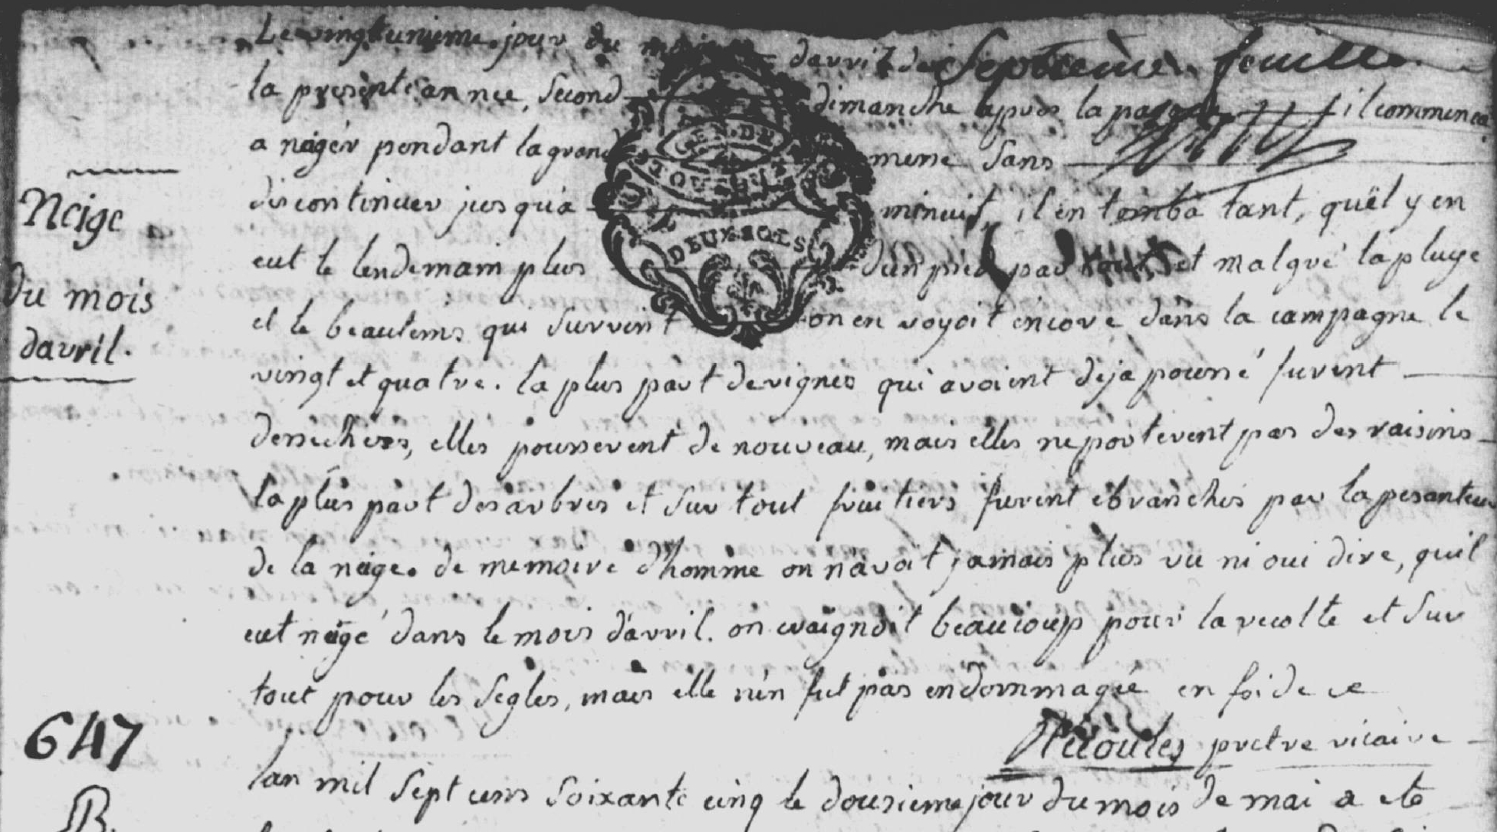 Septième feuille
Le vingtunieme jour du mois davril de
la presente année, second dimanche apres la paque il commenca
a nager pendant la grand messe sans
discontinuer jusqua minuit, il en tomba tant, quel y en
eut le lendemain plus dun pied par tout et malgré la pluye
et le beautems qui survint on en voyoit encore dans la campagne le
vingt et quatre. la plus part de vignes qui avoient deja poussé furent
dessechees, elles pousserent de nouveau, mais elles ne porterent pas des raisins
la plus part des arbres et sur tout fruitiers furent ebranchés par la pesanteur
de la nège. de memoire d'homme on n'avoit jamais plus vu ni oui dire, quil
eut negé dans le mois davril. on craignoit beaucoup pour la recolte et sur
tout pour les segles, mais elle n'en fut pas endommagée en foi de ce
pretre vicaire
lan mil sept cens soixante cinq le dousieme jour du mois de mai a eté
Neige
du mois
davril.
647
B.
GEN. DE
TOULOUSE
DEUX SOLS